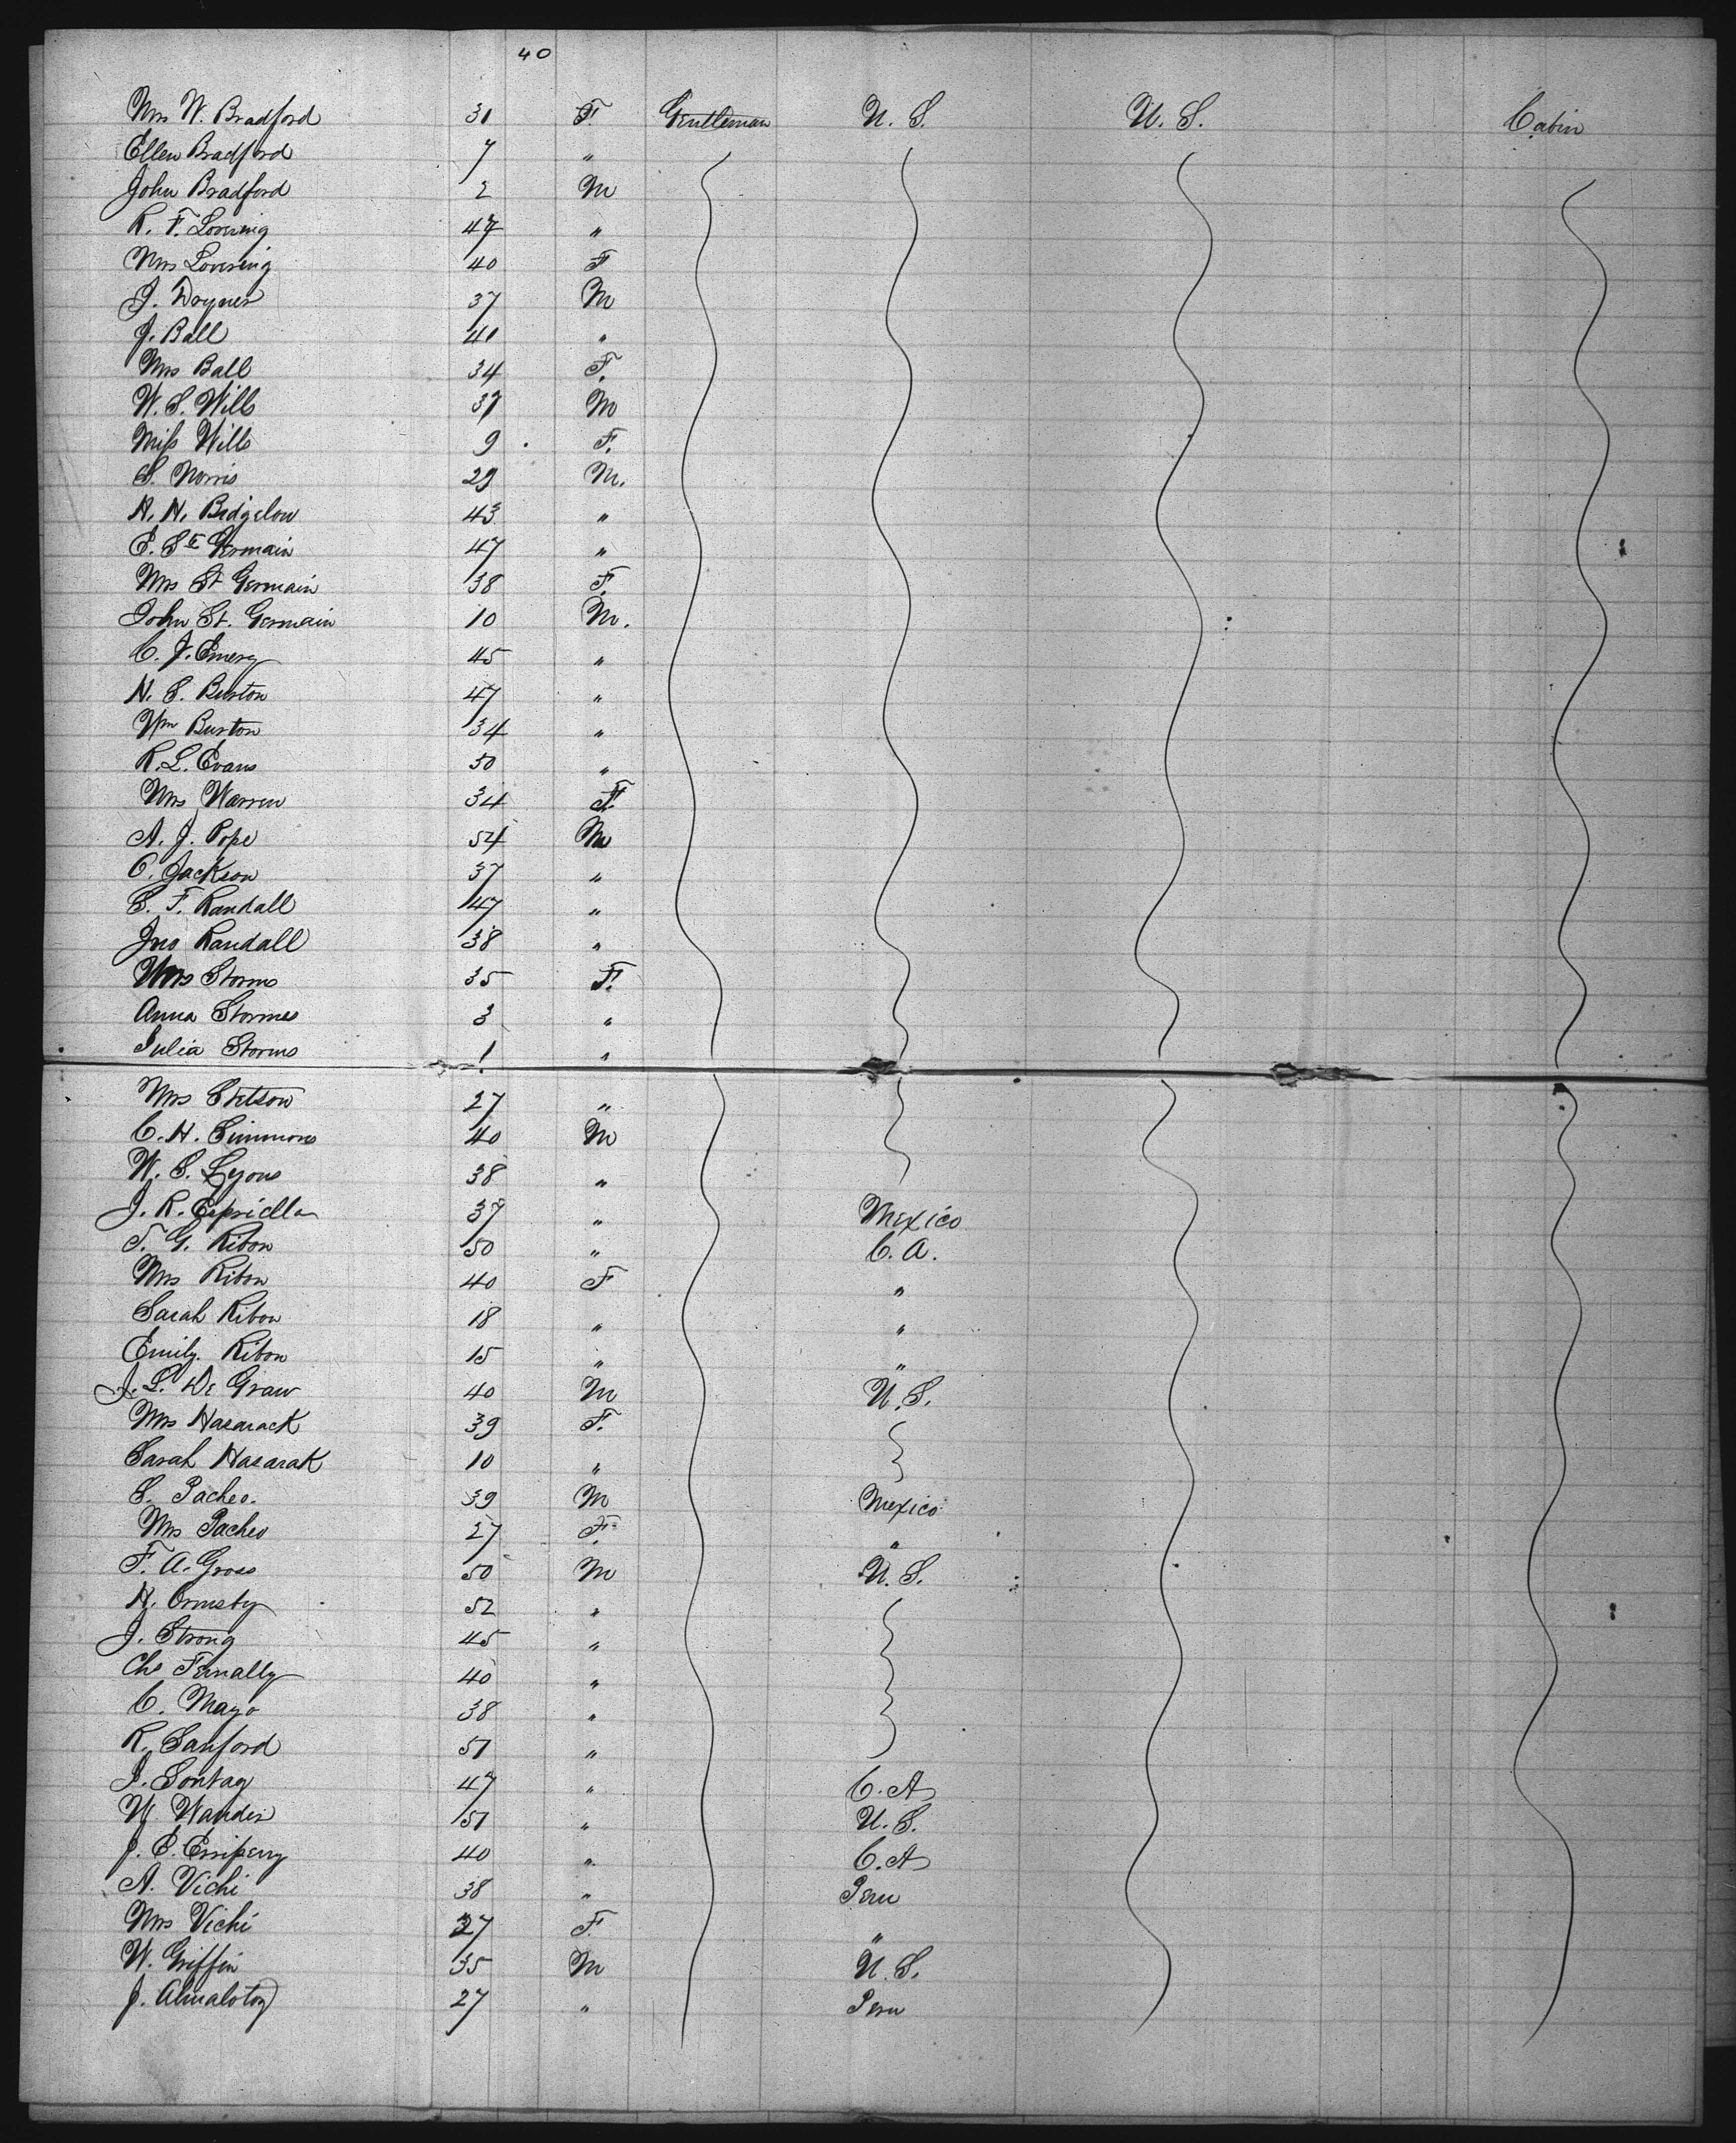 40
Mrs W. Bradford 31 F. Gentleman U. S. U. S. Cabin
Ellen Bradford 7 "
John Bradford 2 M
R. F. Lovering 47 "
Mrs Lovering 40 F
J. Dryner 37 M
J. Ball 41 "
Mrs Ball 34 F.
W. S. Wills 37 M
Miss Wills 9 F.
S. Norris 29 M.
H. H. Bidgelow 43 "
E. St Germain 47 "
Mrs St Germain 38 F.
John St. Germain 10 M.
C. J. Emery 45 "
H. S. Burton 47 "
Wm Burton 34 "
R. L. Evans 50 "
Mrs Warren 34 F.
A. J. Pope 54 M
O. Jackson 37 "
S. F. Randall 47 "
Jno Randall 38 "
Mrs Storms 35 F.
Anna Stormes 3 "
Julia Storms 1 "
Mrs Stetson 27 "
C. H. Simmons 40 M
W. S. Lyons 38 "
J. R. 37 " Mexico
T. G. Ribon 50 " C. A.
Mrs Ribon 40 F "
Sarah Ribon 18 " "
Emily Ribon 15 " "
J. L. De Graw 40 M U. S.
Mrs Hasarack 39 F.
Sarah Hasarak 10 "
S. Pacheo. 39 M Mexico
Mrs Pacheo 27 F. "
F. A. Gross 50 M U. S.
H. Ormsby 52 "
J. Strong 45 "
Chs Fernally 40 "
C. Mayo 38 "
R. Sanford 51 "
J. Sontag 47 " C. A
W. Wander 51 " U. S.
J. E. 40 " C. A
A. Vichi 38 " Peru
Mrs Vichi 27 F. "
W. Griffin 35 M U. S.
J. 27 " Peru